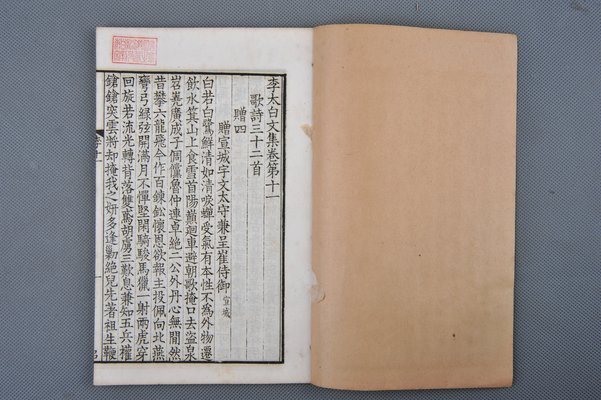 李太白文集卷第十一
歌詩三十二首
贈四
贈宣城宇文太守兼呈崔侍御宣城
白若白鷺鮮清如清唳蟬受氣有本性不為外物遷
飲水箕山上食雪首陽巔迴車避朝歌掩口去盜泉
岧嶤廣成子倜儻魯仲連卓絶二公外丹心無閒然
昔攀六龍飛今作百鍊鈆懷恩欲報主投佩向北燕
彎弓緑弦開滿月不憚堅閑騎駿馬獵一射兩虎穿
回旋若流光轉背落雙鳶胡虜三歎息兼知五兵權
鎗鎗突雲將却掩我之妍多逢勦絶兒先著祖生鞭